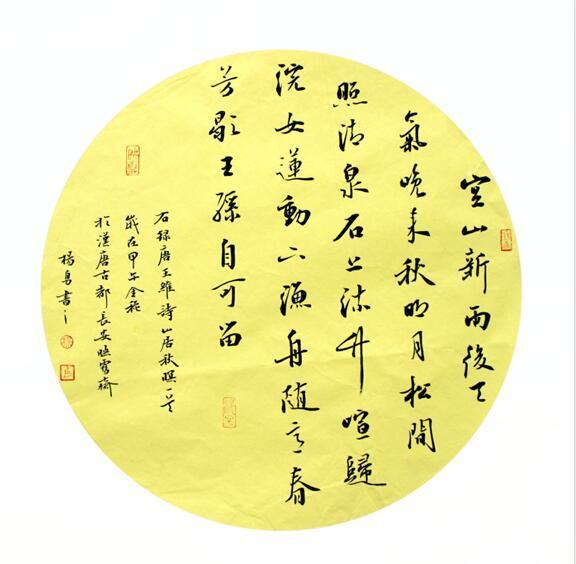 空山新雨後天
氣晚来秋明月松間
照清泉石上流竹喧歸
浣女蓮動下漁舟随意春
芳歇王孫自可留
右録唐王維詩山居秋暝一首
歲在甲午金秋
於漢唐古都長安映雪齋
楊勇書之